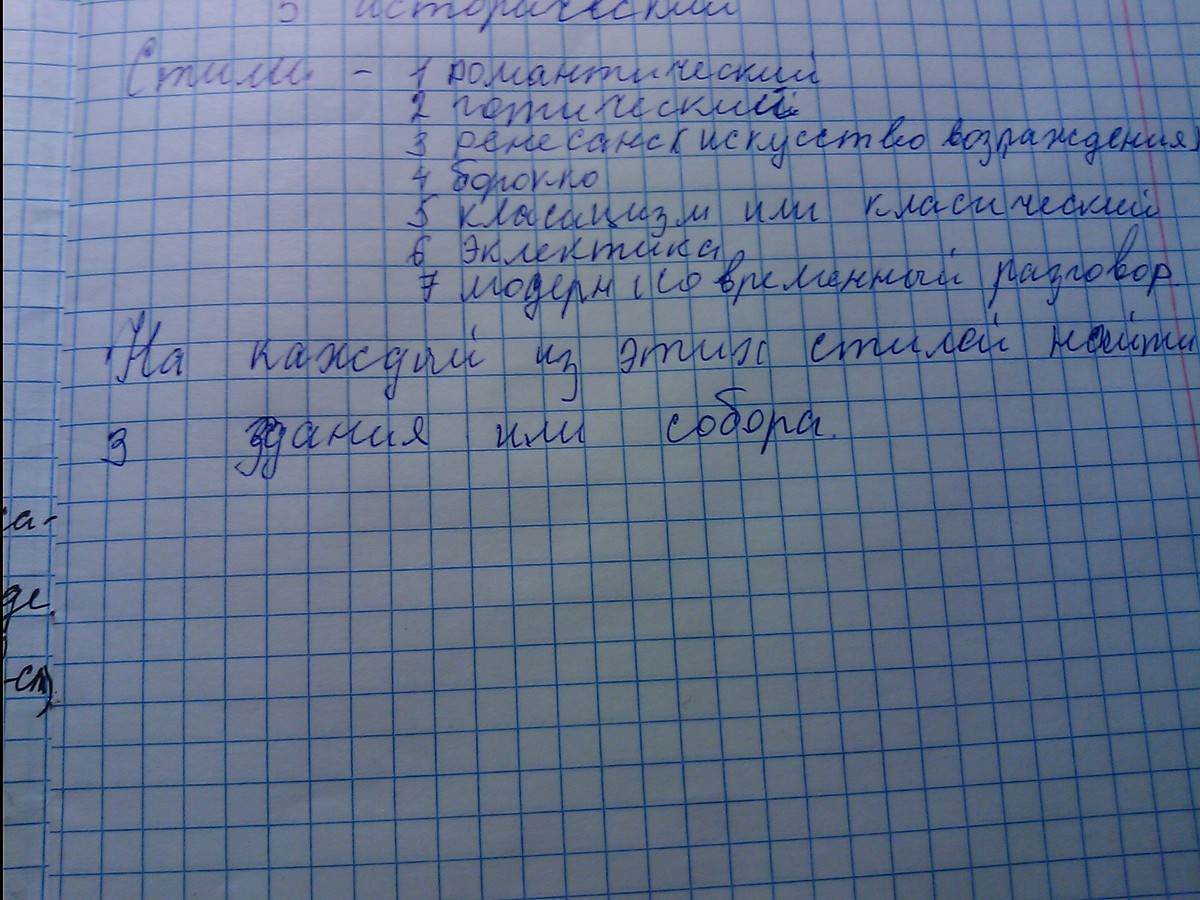 5 исторический
Стили - 1 романтический
2 готический
3 ренесанс (искусство возраждения)
4 борокко
5 класацизм или класический
6 эклектика
7 модерн (современный разговор
На каждый из этих стилей найти
3 здания или собора.
са-
де
-ст